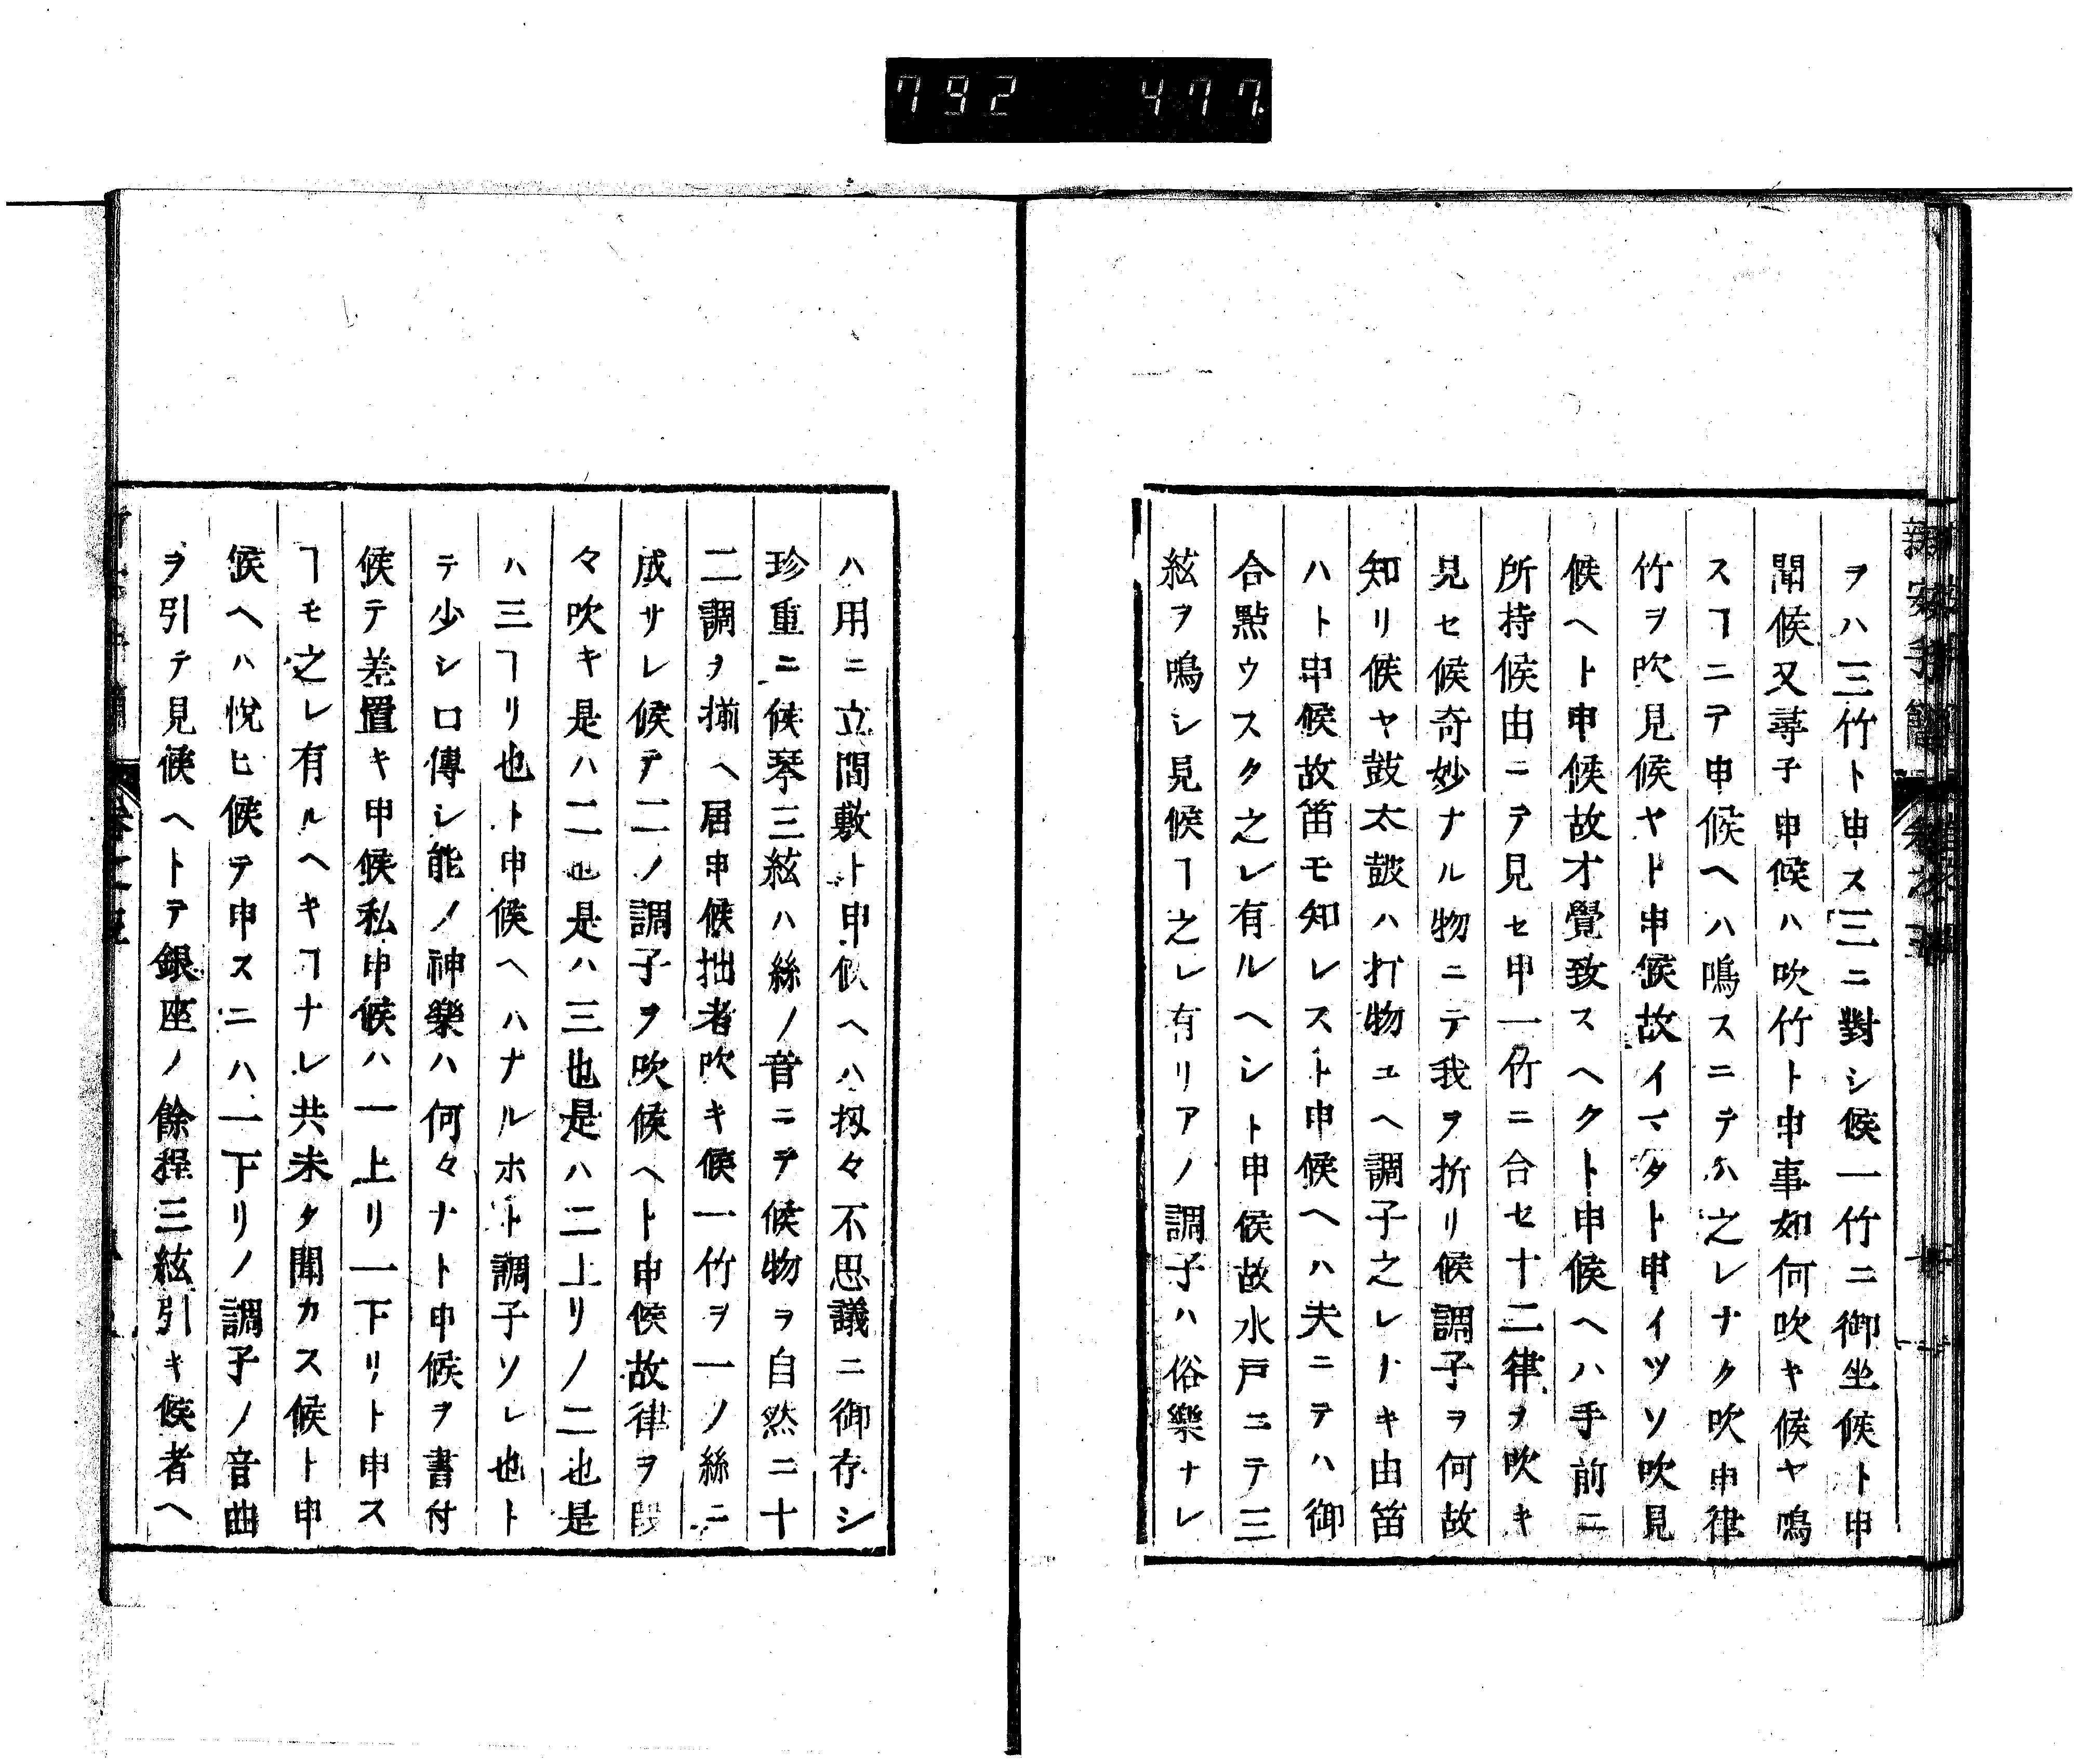 792 477
ヲハ三竹ト申ス三ニ對シ候一竹ニ御坐候ト申
聞候又尋子申候ハ吹竹ト申事如何吹キ候ヤ鳴
スヿニテ申候ヘハ鳴スニテハ之レナク吹申律
竹ヲ吹見候ヤト申候故イマタト申イツソ吹見
候ヘト申候故才覺致スヘクト申候ヘハ手前ニ
所持候由ニテ見セ申一竹ニ合セ十二律ヲ吹キ
見セ候奇妙ナル物ニテ我ヲ折リ候調子ヲ何故
知リ候ヤ鼓太皷ハ打物ユヘ調子之レナキ由笛
ハト申候故笛モ知レスト申候ヘハ夫ニテハ御
合點ウスク之レ有ルヘシト申候故水戸ニテ三
絃ヲ鳴シ見候ヿ之レ有リアノ調子ハ俗樂ナレ
ハ用ニ立間敷ト申候ヘハ扨々不思議ニ御存シ
珍重ニ候琴三絃ハ絲ノ音ニテ候物ヲ自然ニ十
二調ヲ揃ヘ居申候拙者吹キ候一竹ヲ一ノ絲ニ
成サレ候テ二ノ調子ヲ吹候ヘト申候故律ヲ段
々吹キ是ハ二也是ハ三也是ハ二上リノ二也是
ハ三ヿリ也ト申候ヘハナルホト調子ソレ也ト
テ少シ口傳シ能ノ神樂ハ何々ナト申候ヲ書付
候テ差置キ申候私申候ハ一上リ一下リト申ス
ヿモ之レ有ルヘキヿナレ共未タ聞カス候ト申
候ヘハ悅ヒ候テ申スニハ一下リノ調子ノ音曲
ヲ引テ見候ヘトテ銀座ノ餘程三絃引キ候者ヘ